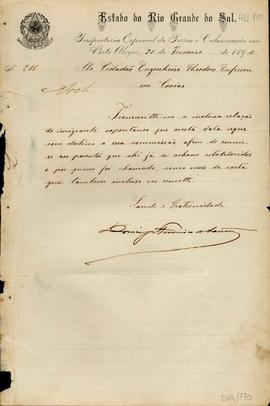 Estado do Rio Grande do Sul.
Inspectoria Especial de Terras e Colonisação em
Porto Alegre, 21 de Fevereiro de 1890
N. 211
Ao Cidadão Engenheiro Theodoro
em Caxias
Arch
Transmitto-vos a inclusa relação
de immigrante espontaneo que nesta data segue
com destino a essa commissão afim de reunir-
se aos parentes que ahi já se achão estabelecidos
e por quem foi chamado como da carta
que tambem incluso vos remetto.
Saude e Fraternidade
Domingos
DIR/170